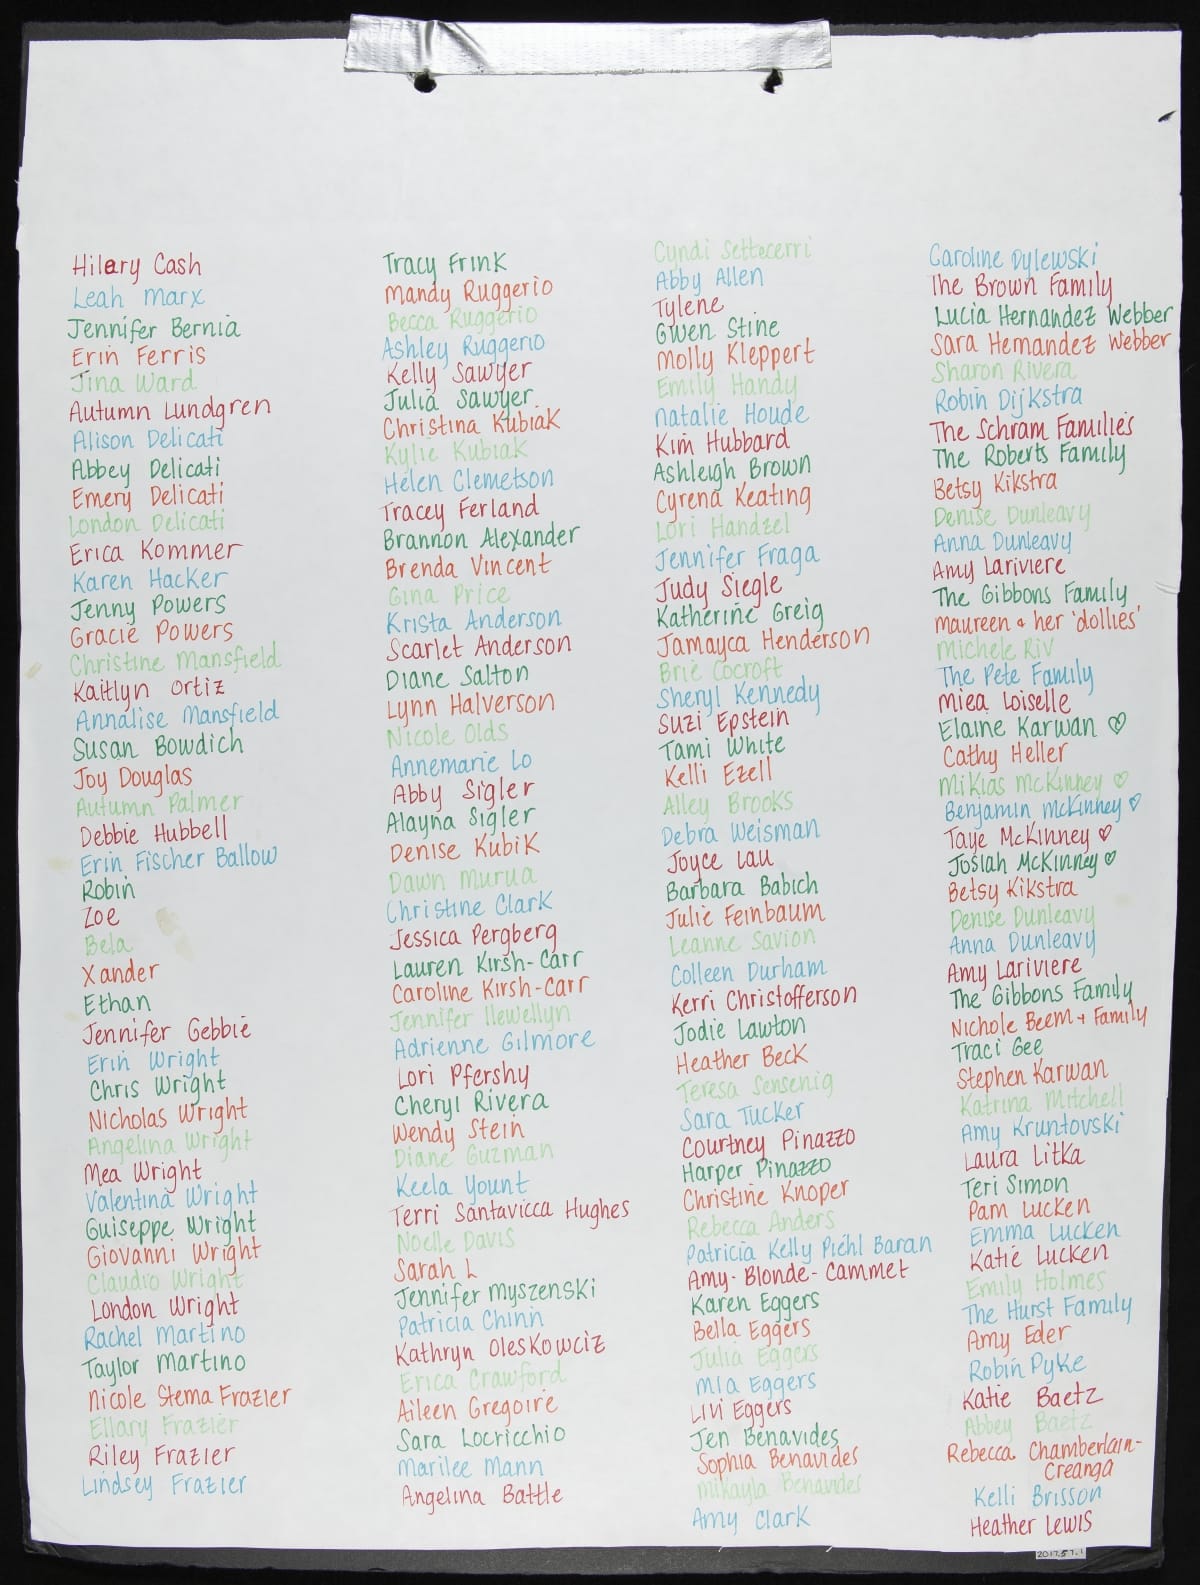 Hilary Cash
Leah Marx
Jennifer Bernia
Erin Ferris
Tina Ward
Autumn Lundgren
Alison Delicati
Abbey Delicati
Emery Delicati
London Delicati
Erica Kommer
Karen Hacker
Jenny Powers
Gracie Powers
Christine Mansfield
Kaitlyn Ortiz
Annalise Mansfield
Susan Bowdich
Joy Douglas
Autumn Palmer
Debbie Hubbell
Erin Fischer Ballow
Robin
Zoe
Bela
Xander
Ethan
Jennifer Gebbie
Erin Wright
Chris Wright
Nicholas Wright
Angelina Wright
Mea Wright
Valentina Wright
Guiseppe Wright
Giovanni Wright
Claudio Wright
London Wright
Rachel Martino
Taylor Martino
Nicole Stema Frazier
Ellary Frazier
Riley Frazier
Lindsey Frazier
Tracy Frink
Mandy Ruggerio
Becca Ruggerio
Ashley Ruggerio
Kelly Sawyer
Julia Sawyer
Christina Kubiak
Kylie Kubiak
Helen Clemetson
Tracey Ferland
Brannon Alexander
Brenda Vincent
Gina Price
Krista Anderson
Scarlet Anderson
Diane Salton
Lynn Halverson
Nicole Olds
Annemarie Lo
Abby Sigler
Alayna Sigler
Denise Kubik
Dawn Murua
Christine Clark
Jessica Pergberg
Lauren Kirsh-Carr
Caroline Kirsh-Carr
Jennifer Llewellyn
Adrienne Gilmore
Lori Pfershy
Cheryl Rivera
Wendy Stein
Diane Guzman
Keela Yount
Terri Santavicca Hughes
Noelle Davis
Sarah L
Jennifer Myszenski
Patricia Chinn
Kathryn Oleskowciz
Erica Crawford
Aileen Gregoire
Sara Locricchio
Marilee Mann
Angelina Battle
Cyndi Settecerri
Abby Allen
Tylene
Gwen Stine
Molly Kleppert
Emily Handy
Natalie Houde
Kim Hubbard
Ashleigh Brown
Cyrena Keating
Lori Handzel
Jennifer Fraga
Judy Siegle
Katherine Greig
Jamayca Henderson
Brie Cocroft
Sheryl Kennedy
Suzi Epstein
Tami White
Kelli Ezell
Alley Brooks
Debra Weisman
Joyce Lau
Barbara Babich
Julie Feinbaum
Leanne Savion
Colleen Durham
Kerri Christofferson
Jodie Lawton
Heather Beck
Teresa Sensenig
Sara Tucker
Courtney Pinazzo
Harper Pinazzo
Christine Knoper
Rebecca Anders
Patricia Kelly Piehl Baran
Amy-Blonde-Cammet
Karen Eggers
Bella Eggers
Julia Eggers
Mia Eggers
Livi Eggers
Jen Benavides
Sophia Benavides
Mikayla Benavides
Amy Clark
Caroline Dylewski
The Brown Family
Lucia Hernandez Webber
Sara Hernandez Webber
Sharon Rivera
Robin Dijkstra
The Schram Families
The Roberts Family
Betsy Kikstra
Denise Dunleavy
Anna Dunleavy
Amy Lariviere
The Gibbons Family
Maureen & her 'dollies'
Michele Riv
The Pete Family
Miea Loiselle
Elaine Karwan ♡
Cathy Heller
Miklas McKinney ♡
Benjamin McKinney ♡
Taye McKinney ♡
Josiah McKinney ♡
Betsy Kikstra
Denise Dunleavy
Anna Dunleavy
Amy Lariviere
The Gibbons Family
Nichole Beem + Family
Traci Gee
Stephen Karwan
Katrina Mitchell
Amy Kruntovski
Laura Litka
Teri Simon
Pam Lucken
Emma Lucken
Katie Lucken
Emily Holmes
The Hurst Family
Amy Eder
Robin Pyke
Katie Baetz
Abbey Baetz
Rebecca Chamberlain-
Creanga
Kelli Brisson
Heather Lewis
2017.57.1